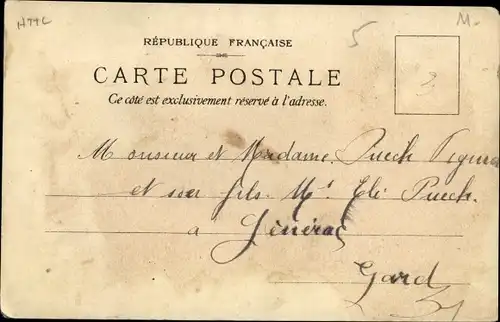 H77C
M.
5
RÉPUBLIQUE FRANÇAISE
CARTE POSTALE
Ce côté est exclusivement réservé à l'adresse.
3
Monsieur et Madame Puech
et son fils Mr Eli Puech.
à Générac
Gard